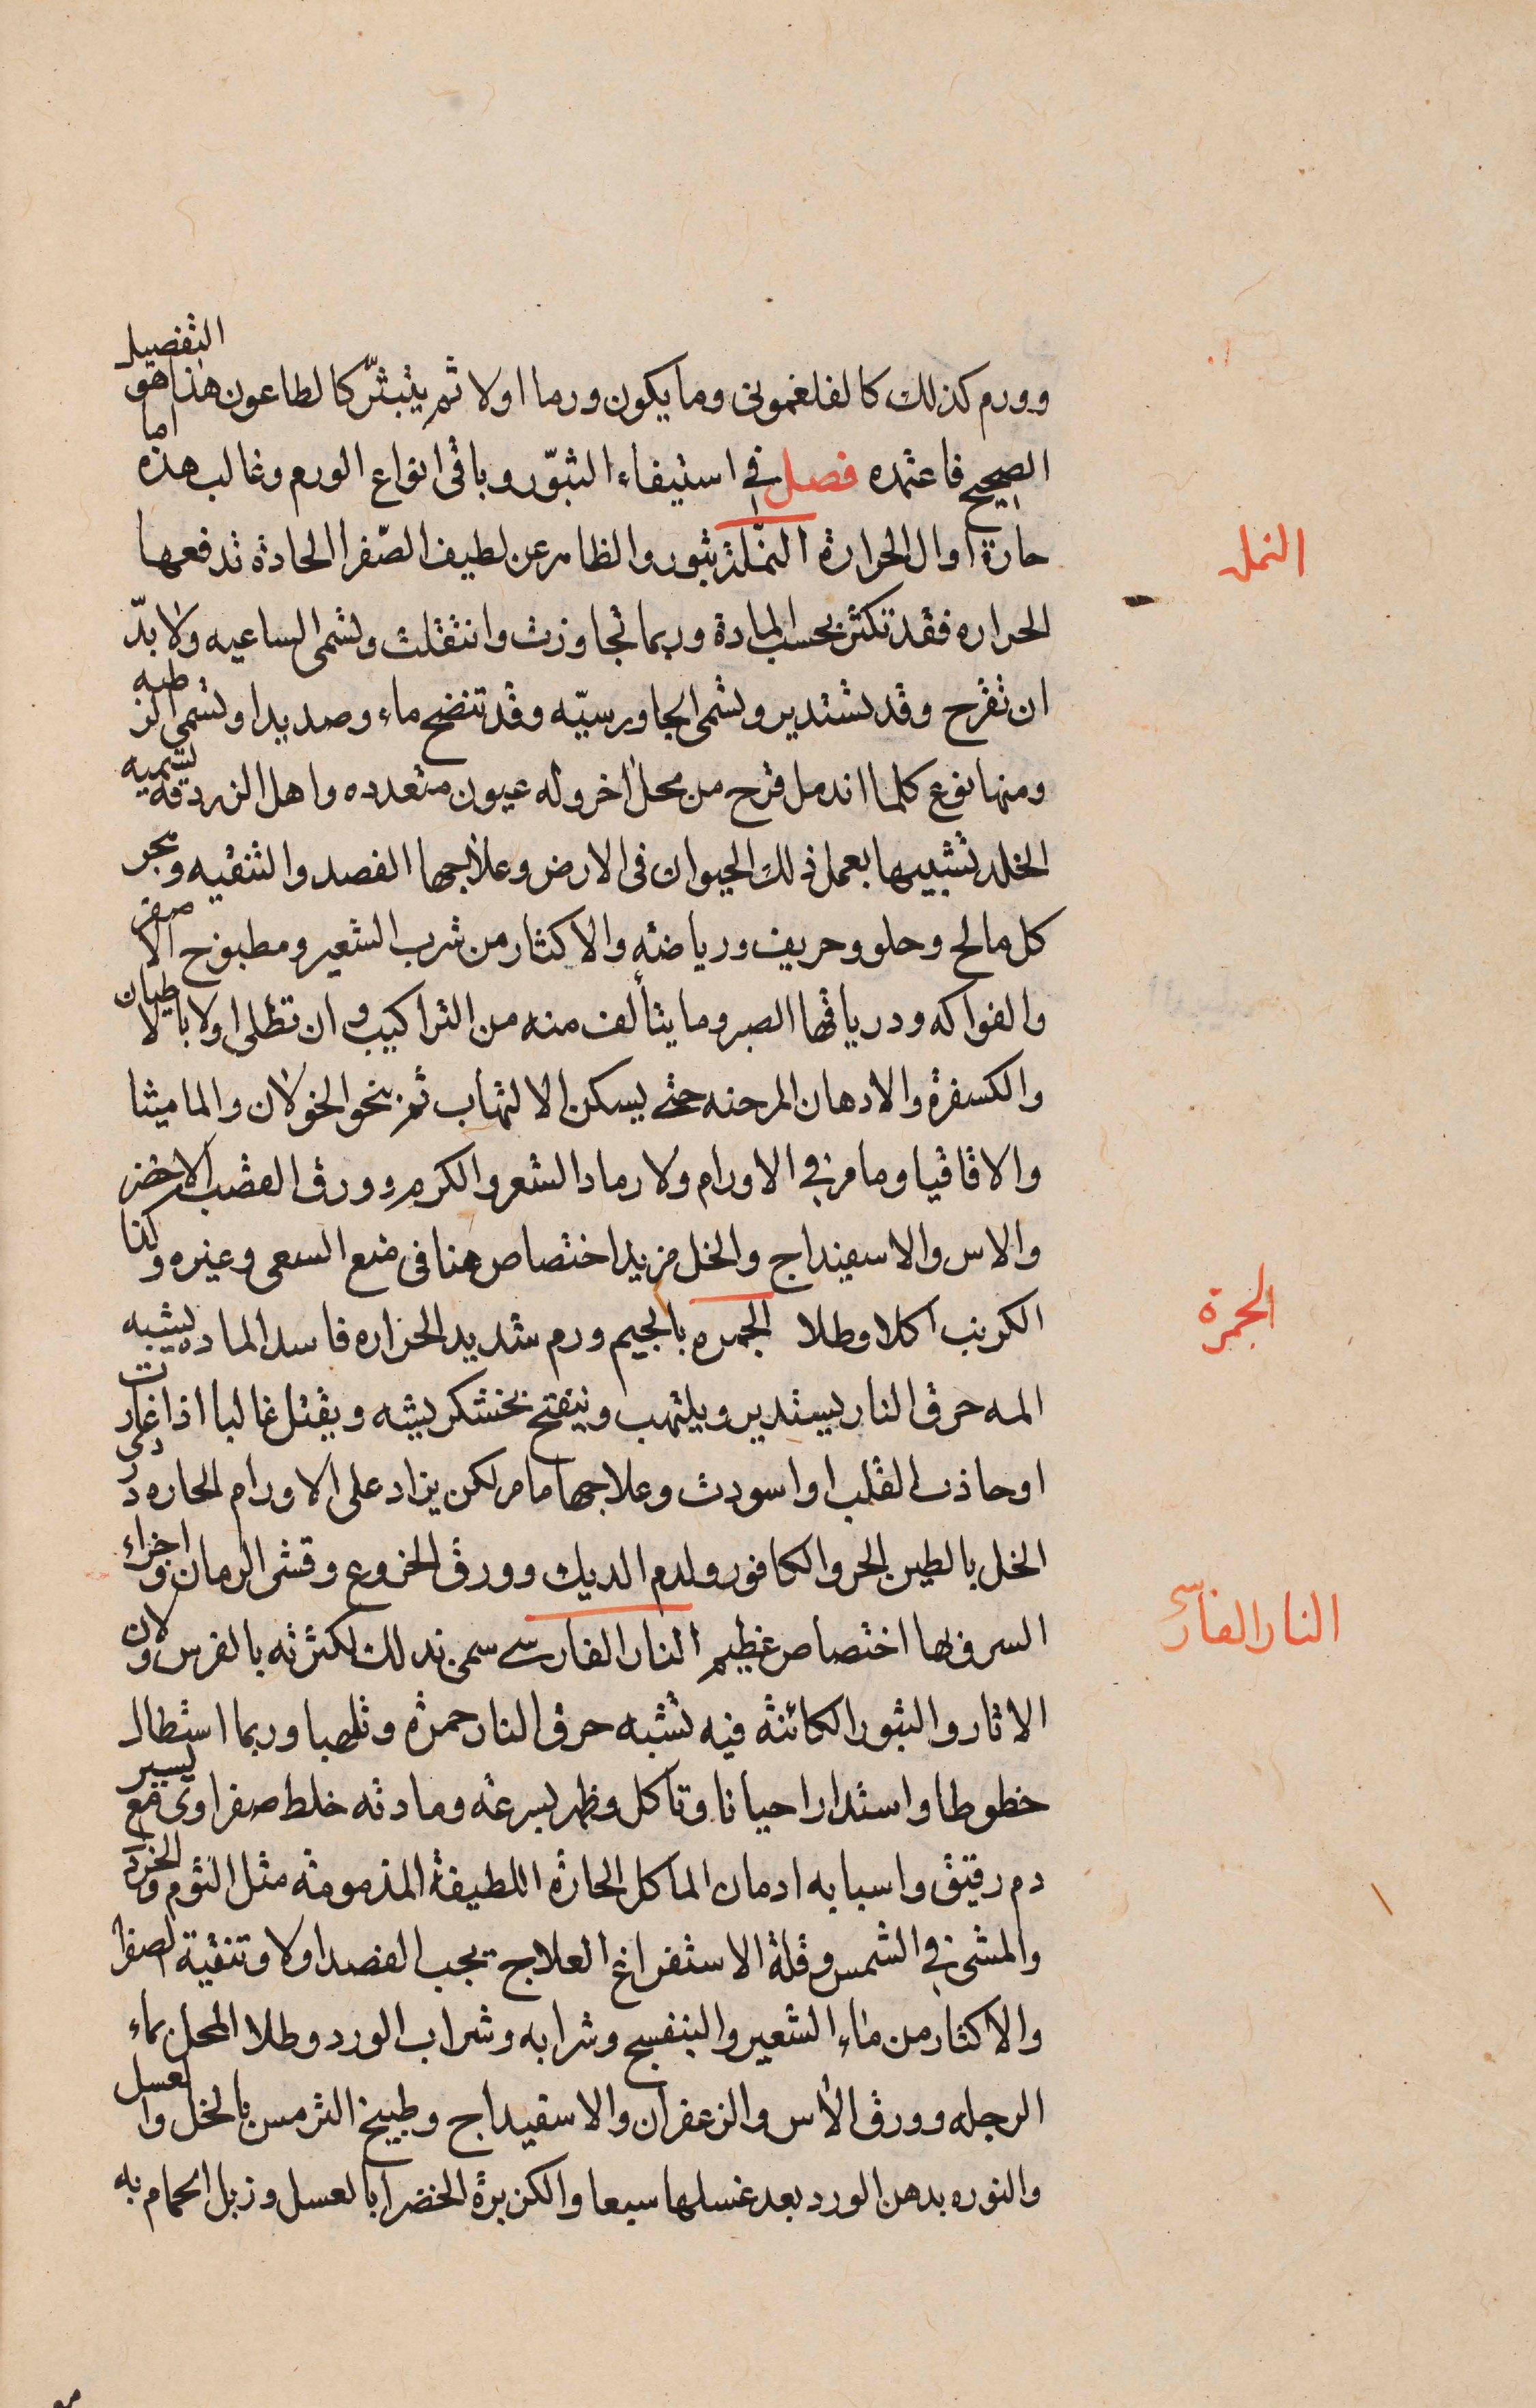 وورم كذلك كالفلغمونى وما يكون ورما اولا ثم يتبثّر كالطاعون هذا هو التفصيل
الصحيح فاعتمده فصل في استيفاء البثوّر وباقى انواع الورم وغالب هذه اما
حارة او الى الحرارة النملة بثور والظاهر عن لطيف الصّفرا الحادة تدفعها
النمل
الحراره فقد تكثر بحسب المادة وربما تجاوزت وانتقلت وتسمى الساعيه ولا بدّ
ان تقرح وقد تستدير وتسمى الجاورسيّه وقد تنضح ماء وصديدا وتسمى الرطبه
ومنها نوع كلما اندمل قرح من محل اخر وله عيون متعدده واهل الزردقة تسميه
الخلد تشبيها بعمل ذلك الحيوان فى الارض وعلاجها الفصد والتنقيه وهجر
كل مالح وحلو وحريف ورياضته والاكثار من شرب الشعير ومطبوخ الاصفر
والفواكه ودرياقها الصبر وما يتألف منه من التراكيب وان تطلى اولا بالاطيان
والكسفرة والادهان المرخيه حتى يسكن الالتهاب ثم بنحو الخولان والماميثا
والاقاقيا وما مر في الاورام ولا رماد الشعر والكرم وورق القصب الاخضر
والاس والاسفيداج والخل مزيد اختصاص هنا فى منع السعى وغيره وكذا
الكرنب اكلا وطلا الجمره بالجيم ورم شديد الحراره فاسد الماده يشبه
الجمرة
المه حرق النار يستدير ويلتهب وينفتح بخشكريشه ويقتل غالبا اذا غارت
او حاذت القلب او اسودت وعلاجها ما مر لكن يزاد على الاورام الحاره دردى
الخل بالطين الحر والكافور ولدم الديك وورق الخزوع وقشر الرمان واجزاء
السرو بها اختصاص عظيم النار الفارسى سمى بذلك لكثرته بالفرس ولان
النار الفارسى
الاثار والبثور الكائنة فيه تشبه حرق النار حمرة وتلهبا وربما استطال
خطوطا واستدار احيانا وتاكل وظهر بسرعة ومادته خلط صفراوى مع يسير
دم رقيق واسبابه ادمان الماكل الحارة اللطيفة المذمومة مثل الثوم والخردل
والمشى في الشمس وقلة الاستفراغ العلاج يجب الفصد اولا وتنقية الصفرا
والاكثار من ماء الشعير والبنفسج وشرابه وشراب الورد وطلا المحل بماء
الرجله وورق الاس والزعفران والاسفيداج وطبيخ الترمس بالخل والعسل
والنوره بدهن الورد بعد غسلها سبعا والكزبرة الخضرا بالعسل وزبل الحمام به